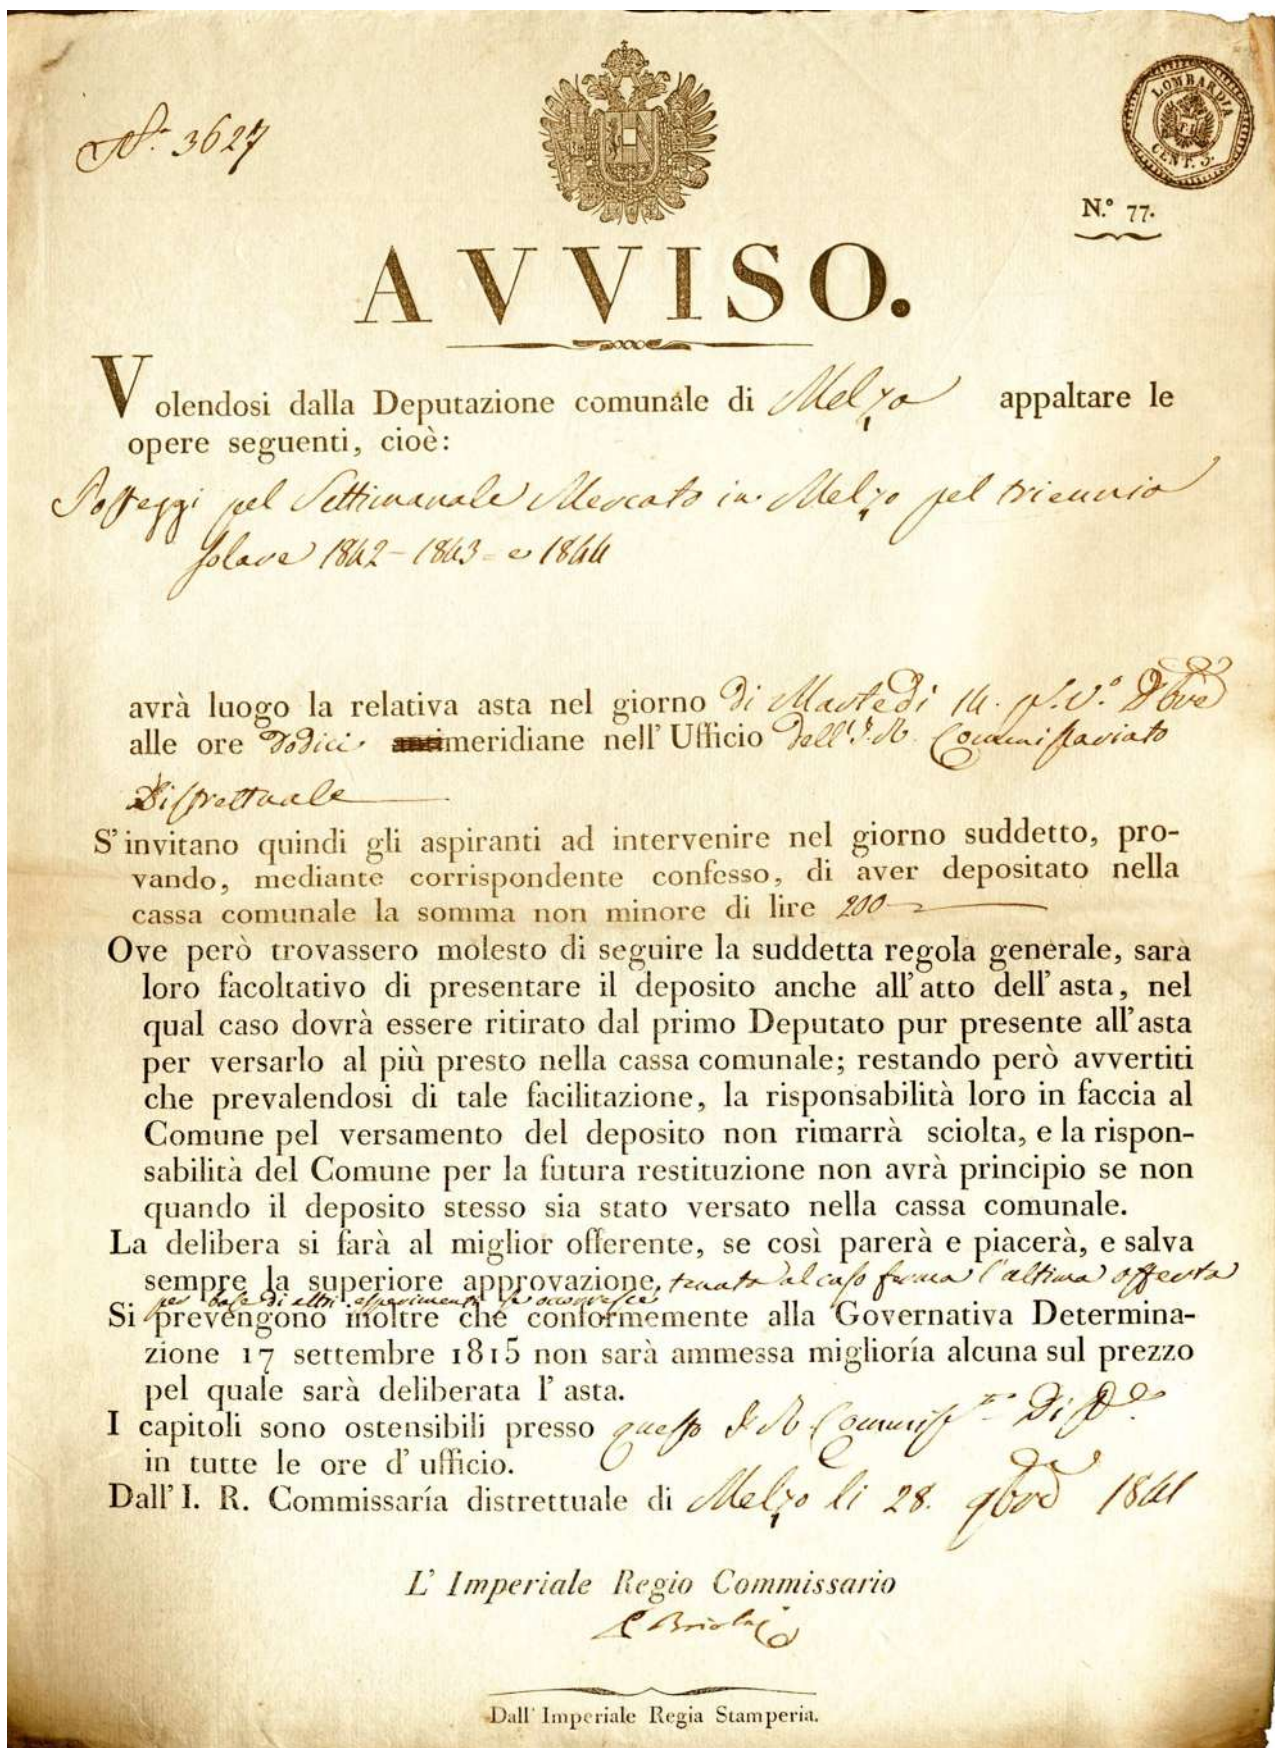 N.° 3627
LOMBARDIA
CENT. 5.
N.° 77.
AVVISO.
Volendosi dalla Deputazione comunale di Melzo appaltare le
opere seguenti, cioè:
Posteggi pel Settimanale Mercato in Melzo pel triennio
solare 1842 - 1843 - e 1844
avrà luogo la relativa asta nel giorno di Martedi 14. p.v.° Xbre
alle ore dodici meridiane nell' Ufficio dell' I. R. Commissariato
Distrettuale
S' invitano quindi gli aspiranti ad intervenire nel giorno suddetto, pro-
vando, mediante corrispondente confesso, di aver depositato nella
cassa comunale la somma non minore di lire 200
Ove però trovassero molesto di seguire la suddetta regola generale, sarà
loro facoltativo di presentare il deposito anche all' atto dell' asta, nel
qual caso dovrà essere ritirato dal primo Deputato pur presente all'asta
per versarlo al più presto nella cassa comunale; restando però avvertiti
che prevalendosi di tale facilitazione, la risponsabilità loro in faccia al
Comune pel versamento del deposito non rimarrà sciolta, e la rispon-
sabilità del Comune per la futura restituzione non avrà principio se non
quando il deposito stesso sia stato versato nella cassa comunale.
La delibera si farà al miglior offerente, se così parerà e piacerà, e salva
sempre la superiore approvazione, tenuta al caso ferma l'ultima offerta
per base di altri esperimenti se occorresse
Si prevengono inoltre che conformemente alla Governativa Determina-
zione 17 settembre 1815 non sarà ammessa miglioría alcuna sul prezzo
pel quale sarà deliberata l' asta.
I capitoli sono ostensibili presso questo I. R. Commiss.° Dist.e
in tutte le ore d' ufficio.
Dall' I. R. Commissaría distrettuale di Melzo li 28. 9bre 1841
L' Imperiale Regio Commissario
Dall' Imperiale Regia Stamperia.